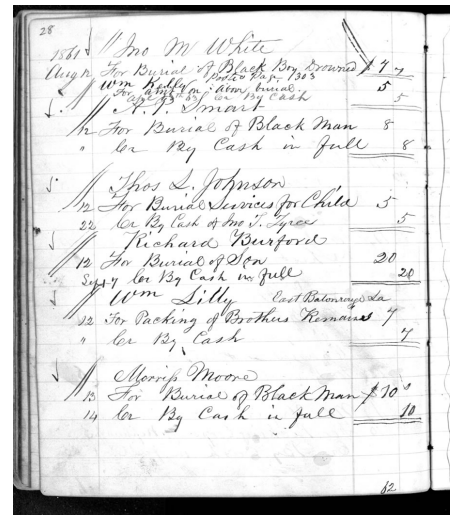 28
1861 Jno M White
Augt 12 For Burial of Black Boy Drowned $ 7 7
Wm Kelly Posted Page 1303
For amt on above burial 5
By Cash 5
A. J. Smart
12 For Burial of Black Man 8
" Cr By Cash in full 8
Thos L. Johnson
12 For Burial Services for Child 5
22 Cr By Cash of Jno T. Tyree 5
Richard Burford
12 For Burial of Son 20
Sept 7 Cr By Cash in full 20
Wm Lilly East Batonrouge La
12 For Packing of Brothers Remains 7
" Cr By Cash 7
Morriss Moore
13 For Burial of Black Man $ 10
14 Cr By Cash in full 10
62